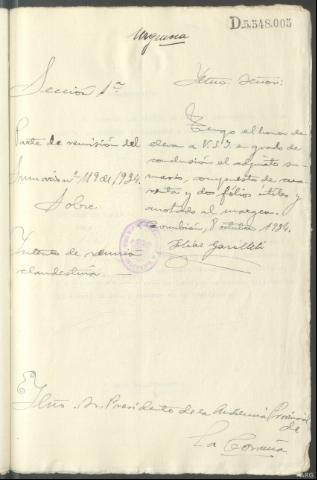 D.5.548.005
Urgencia
Sección 1ª
Iltmo. Señor:
Parte de remisión del
Sumario nº 119 de 1934.
Sobre
Intento de reunión
clandestina.
Tengo el honor de
elevar a V.S.I. en grado de
conclusión el adjunto su-
mario, compuesto de
y dos fólios útiles y
anotado al margen.
Corcubión, 8 octubre 1934.
Elías
El Iltmo. Sr. Presidente de la Audiencia Provincial
de
La Coruña
ARG